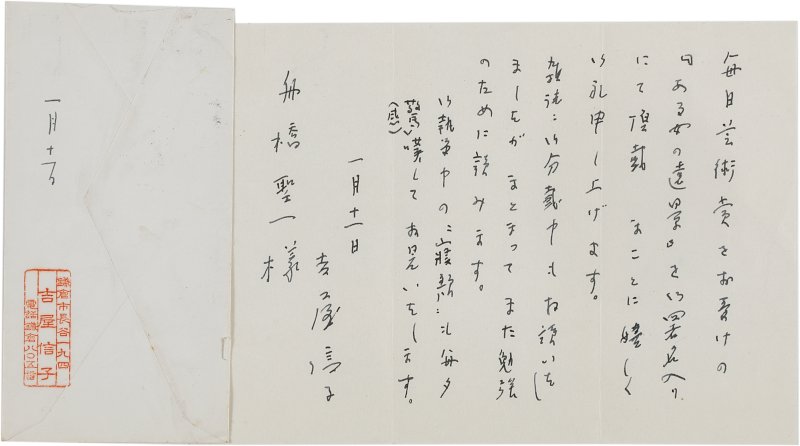 毎日芸術賞をお受けの
『ある女の遠景』を御署名入り
にて頂戴 まことに嬉しく
御礼申し上げます。
雑誌に御分載中もお読いたし
ましたが まとまって また勉強
のために読みます。
御執筆中の も毎夕
驚嘆して お見いたします。
(感)
一月十一日
吉屋信子
舟橋聖一様
一月十一日
鎌倉市長谷一九四
吉屋信子
電話鎌倉八〇五番